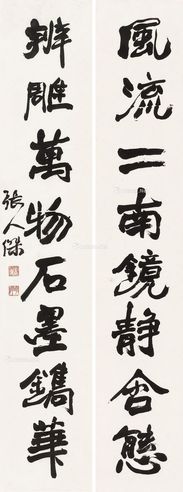 風流二南鏡静含態
辨雕萬物石墨鐫華
張人傑